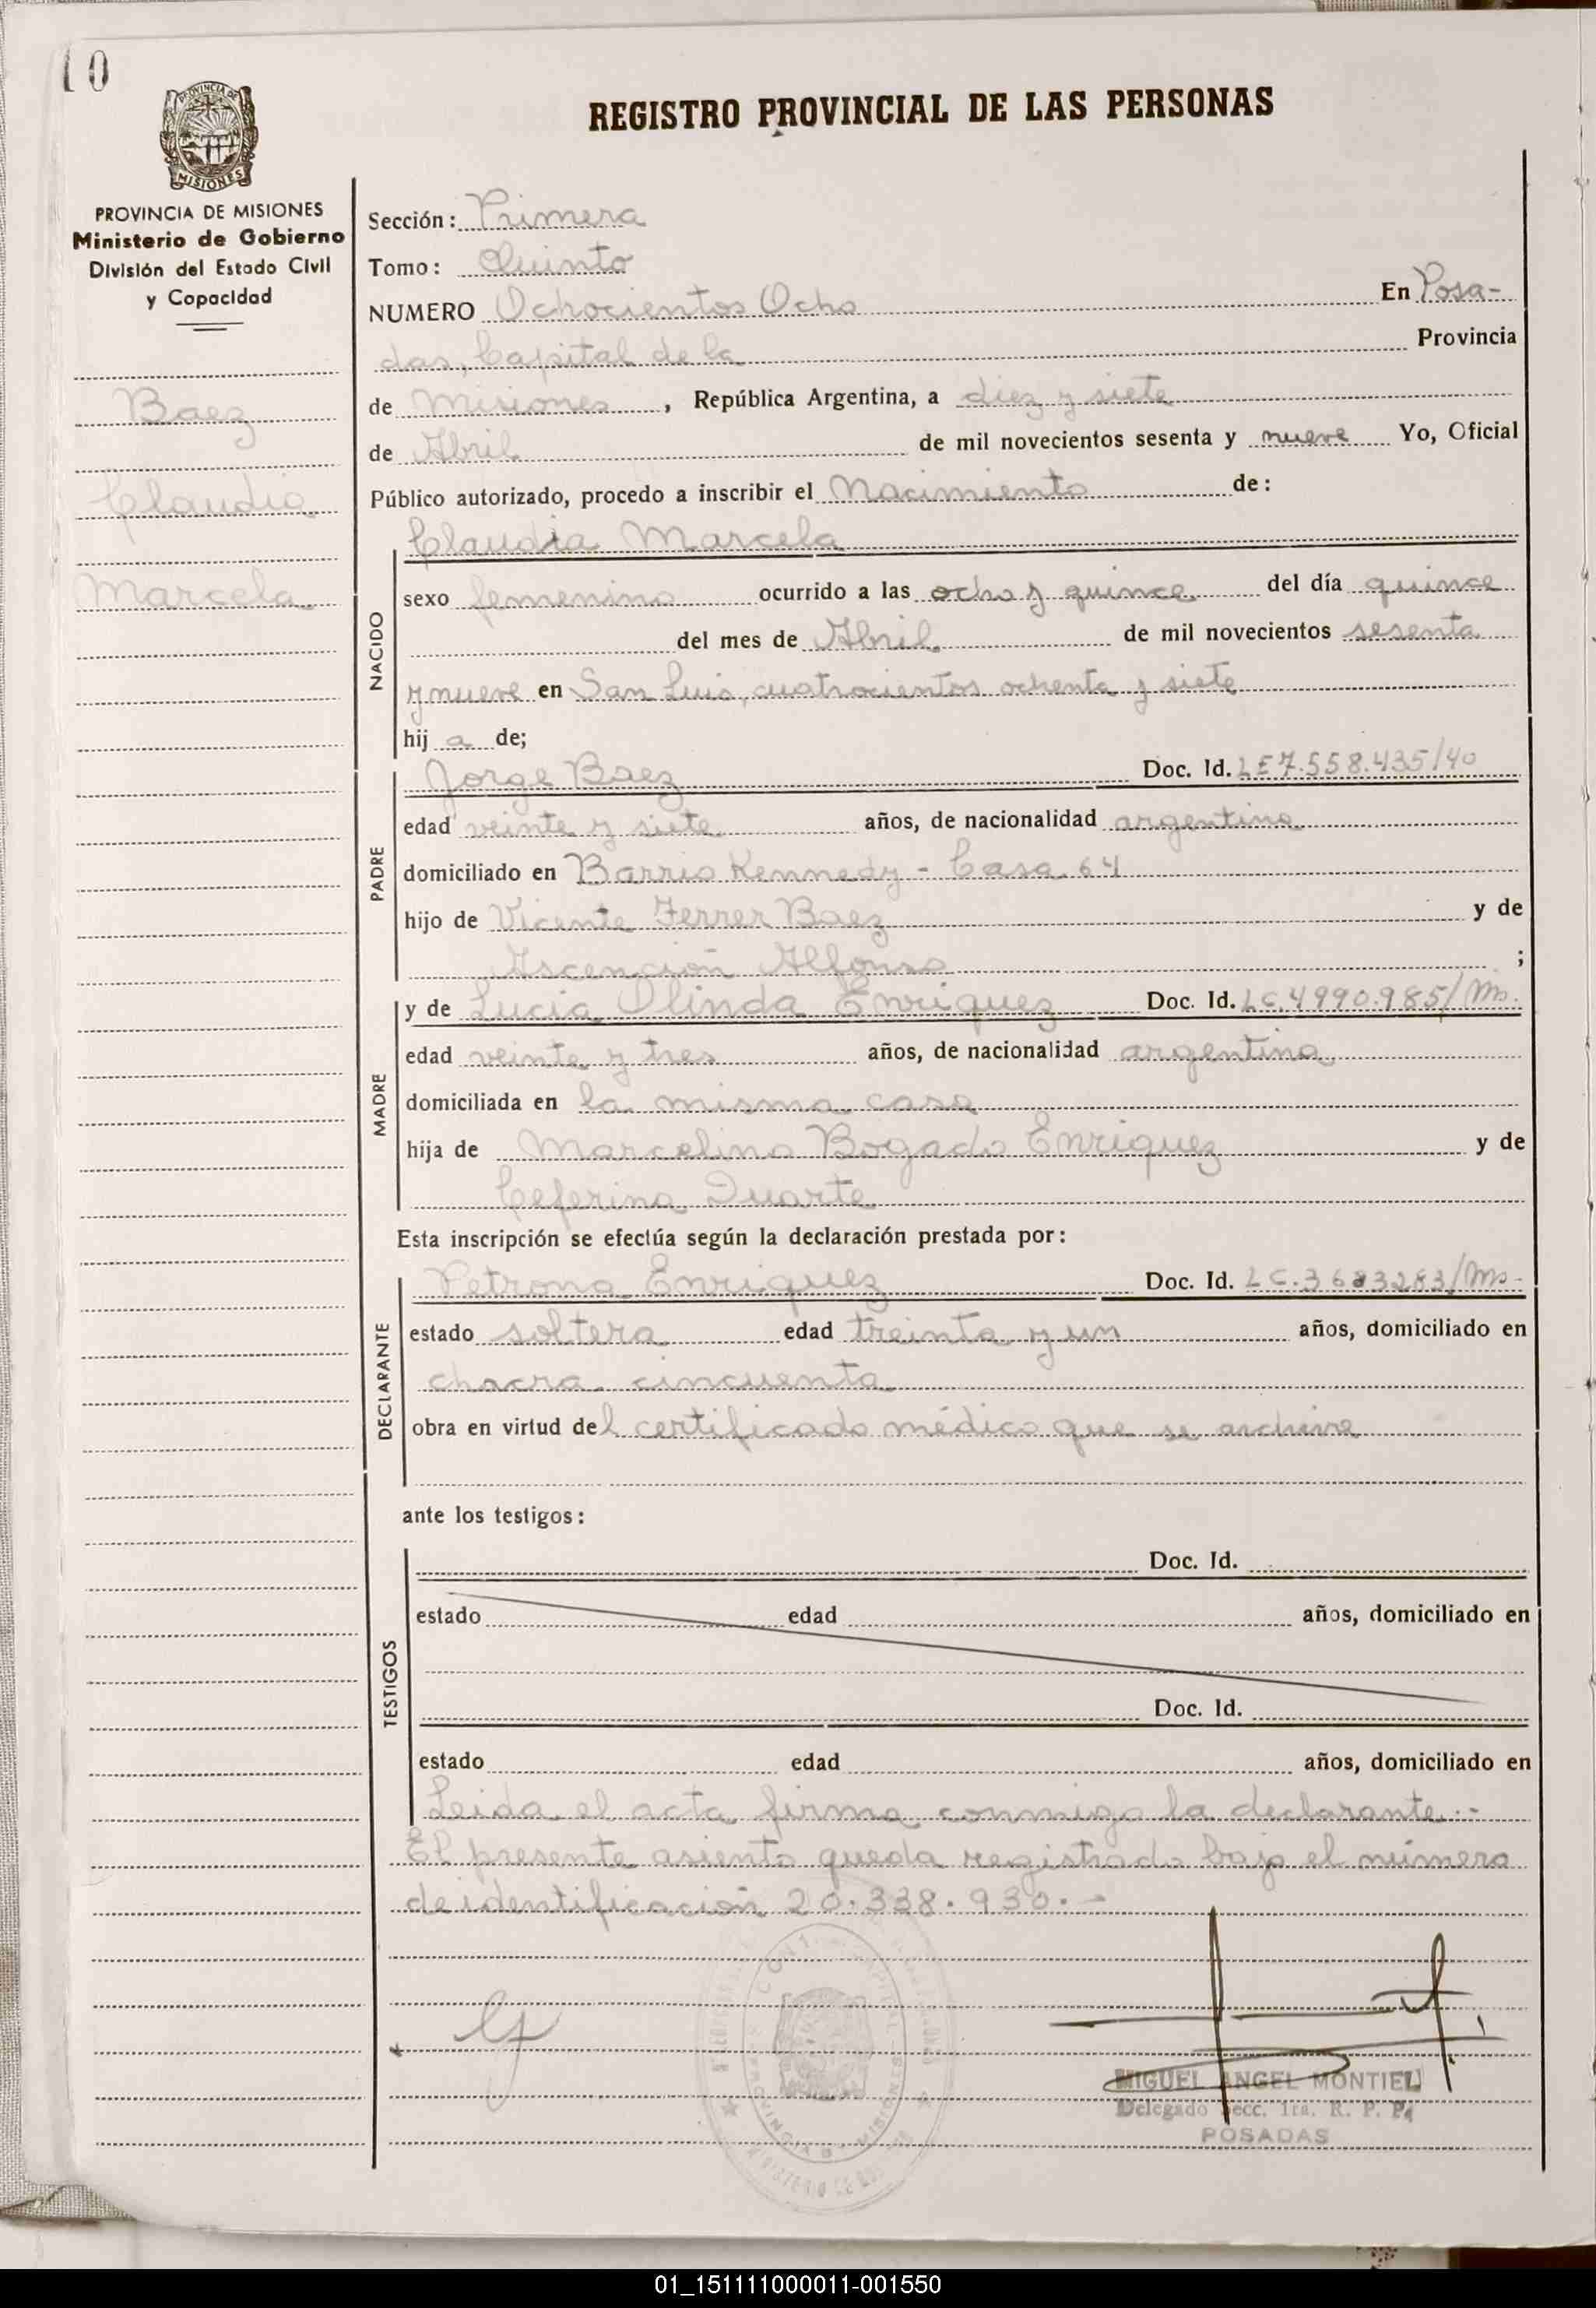 10
REGISTRO PROVINCIAL DE LAS PERSONAS
PROVINCIA DE
MISIONES
PROVINCIA DE MISIONES
Ministerio de Gobierno
División del Estado Civil
y Capacidad
Baez
Claudia
Marcela
Sección: Primera
Tomo: Quinto
NUMERO Ochocientos Ocho En Posa-
das, Capital de la Provincia
de Misiones, República Argentina, a diez y siete
de Abril de mil novecientos sesenta y nueve Yo, Oficial
Público autorizado, procedo a inscribir el Nacimiento de:
Claudia Marcela
NACIDO
sexo femenino ocurrido a las ocho y quince del día quince
del mes de Abril de mil novecientos sesenta
y nueve en San Luis, cuatrocientos ochenta y siete
hij a de;
PADRE
Jorge Baez Doc. Id. LE 7.558.435/40
edad veinte y siete años, de nacionalidad argentina
domiciliado en Barrio Kennedy - Casa 64
hijo de Vicente Ferrer Baez y de
Ascención Alfonso ;
MADRE
y de Lucia Olinda Enriquez Doc. Id. LC.4990.985/Ms.
edad veinte y tres años, de nacionalidad argentina
domiciliada en la misma casa
hija de Marcelino Bogado Enriquez y de
Ceferina Duarte
Esta inscripción se efectúa según la declaración prestada por:
DECLARANTE
Petrona Enriquez Doc. Id. LC.3683283/Ms-
estado soltera edad treinta y un años, domiciliado en
chacra cincuenta
obra en virtud del certificado médico que se archiva
ante los testigos:
TESTIGOS
Doc. Id.
estado edad años, domiciliado en
Doc. Id.
estado edad años, domiciliado en
Leida el acta firma conmigo la declarante.-
El presente asiento queda registrado bajo el número
de identificación 20.338.930.-
MIGUEL ANGEL MONTIEL
Delegado Secc. 1ra. R. P. P.
POSADAS
01_151111000011-001550